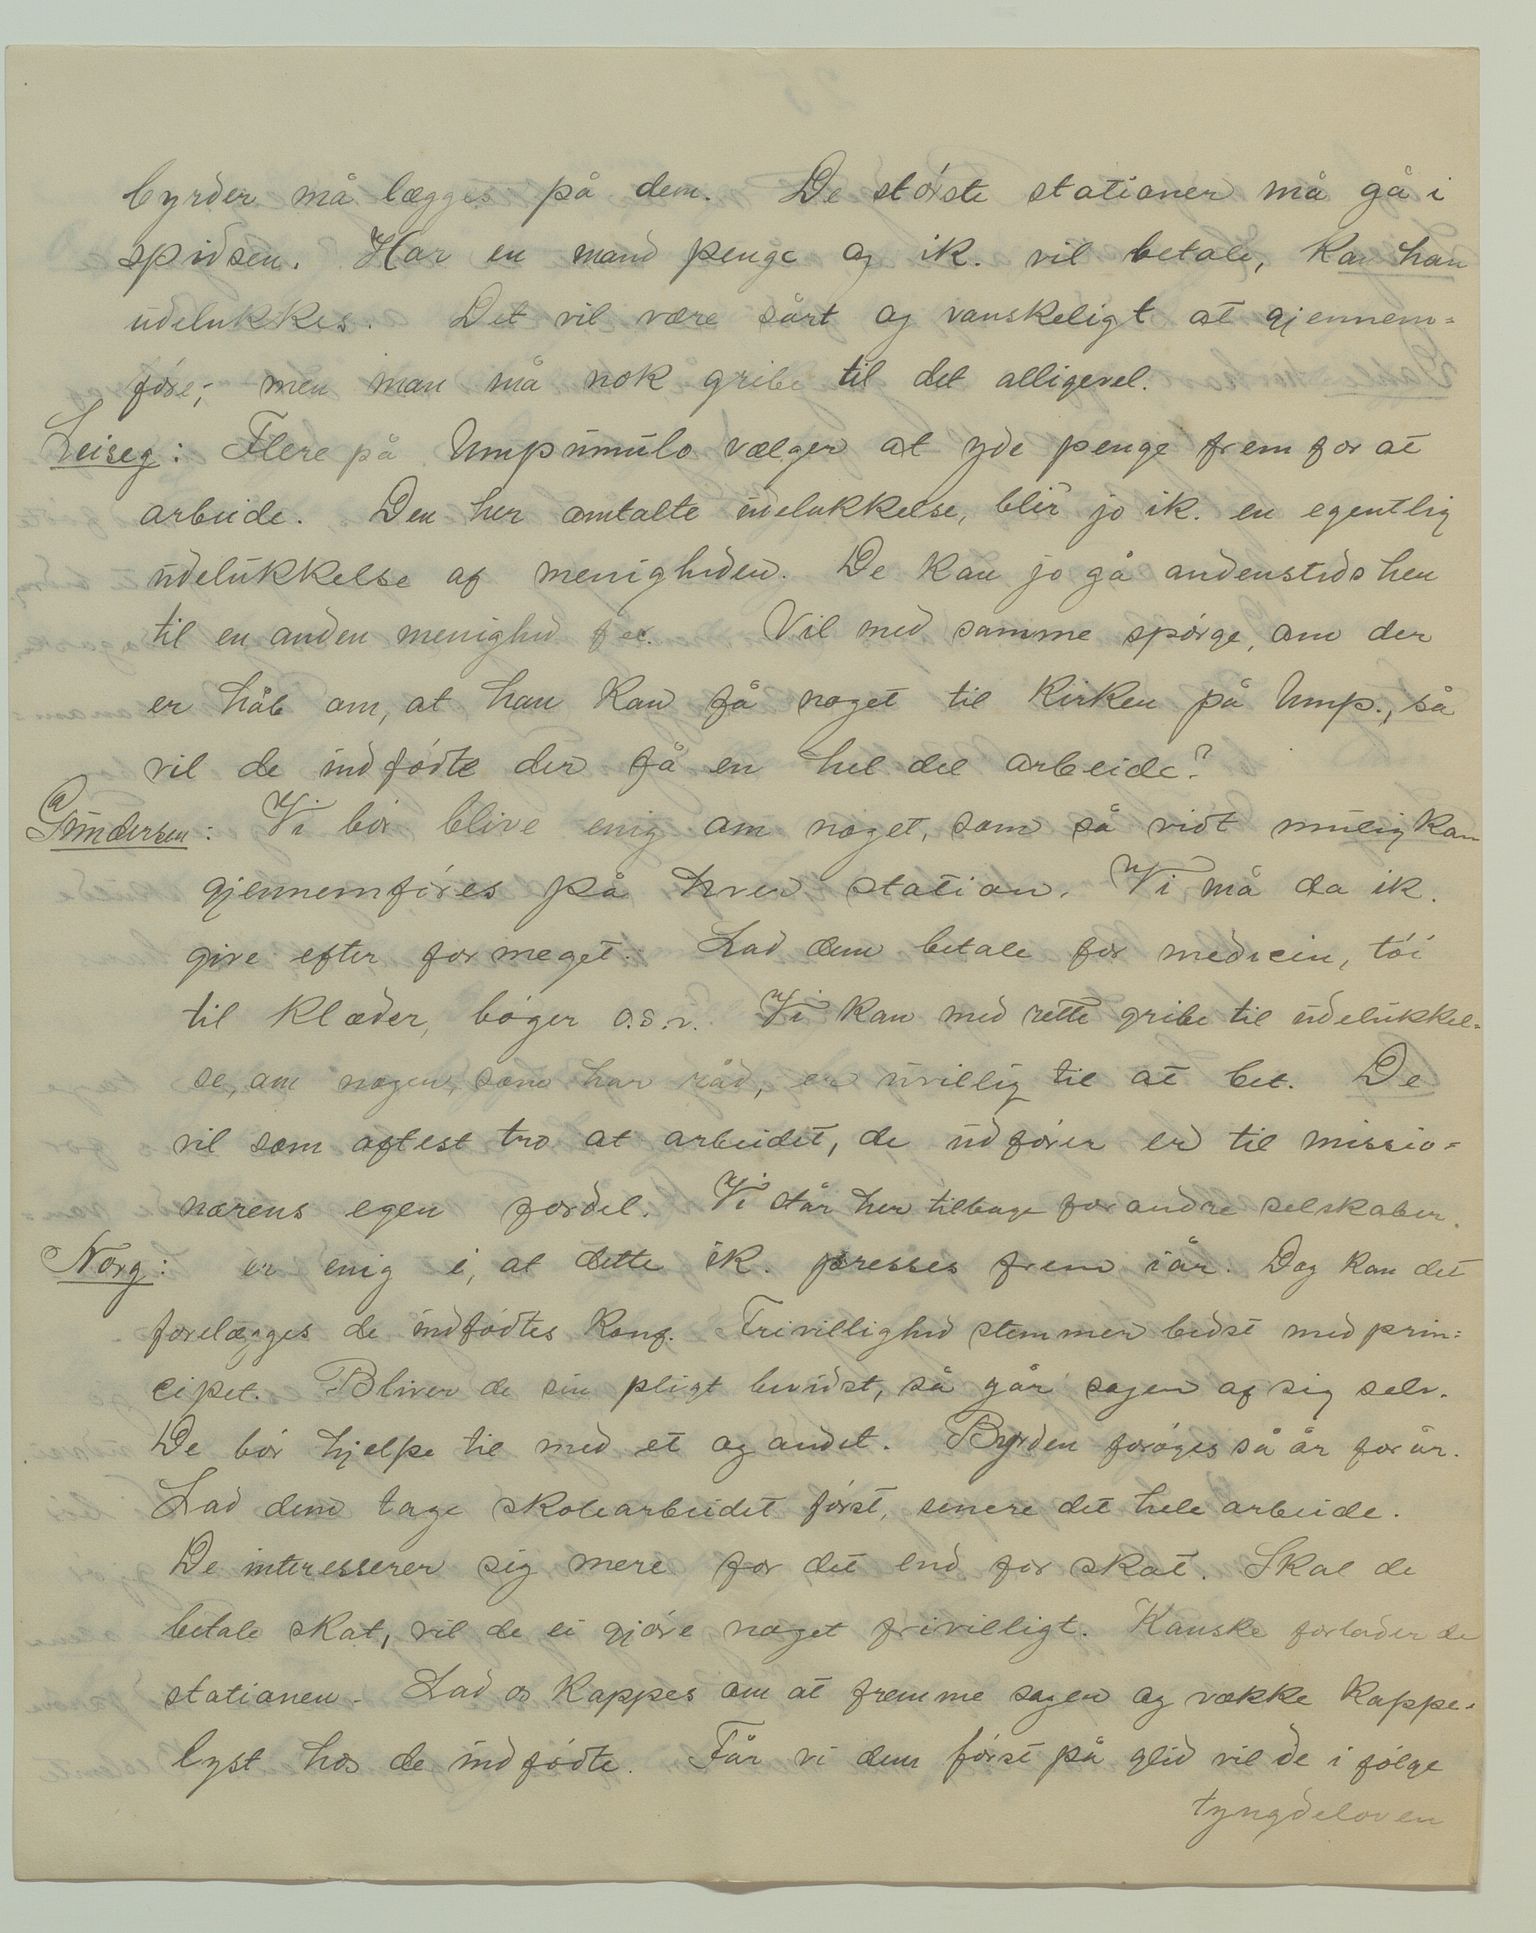 byrder må lægges på dem. De største stationer må gå i
spidsen. Har en mand penge og ik. vil betale, kan han
udelukkes. Det vil være sårt og vanskeligt at gjennem=
føre; men man må nok gribe til det alligevel.
Leiseg: Flere på Umpumulo vælger at yde penge fremfor at
arbeide. Den her omtalte udelukkelse, blir jo ik. en egentlig
udelukkelse af menigheden. De kan jo gå andensteds hen
til en anden menighed f ex. Vil med samme spørge, om der
er håb om, at han kan få noget til Kirken på Ump., så
vil de indfødte der få en hel del arbeide?
Gundersen: Vi bør blive enig om noget, som så vidt mulig kan
gjennemføres på hver station. Vi må da ik.
give efter for meget. Lad dem betale for medicin, tøi
til klæder, bøger o.s.v. Vi kan med rette gribe til udelukkel=
se, om nogen, som har råd, er uvillig til at bet. De
vil som oftest tro at arbeidet, de udfører er til missio=
nærens egen fordel. Vi står her tilbage for andre selskaber.
Norg: er enig i, at dette ik. presses frem iår. Dog kan det
forelægges de indfødtes Konf. Frivillighed stemmer bedst med prin=
cipet. Bliver de sin pligt bevidst, så går sagen af sig selv.
De bør hjelpe til med et og andet. Byrden forøges så år for år.
Lad dem tage skolearbeidet først, senere det hele arbeide.
De interesserer sig mere for det end for skat. Skal de
betale skat, vil de ei gjøre noget frivilligt. Kanske forlader de
stationen. Lad os kappes om at fremme sagen og vække kappe=
lyst hos de indfødte. Får vi dem først på glid vil de i følge
tyngdeloven